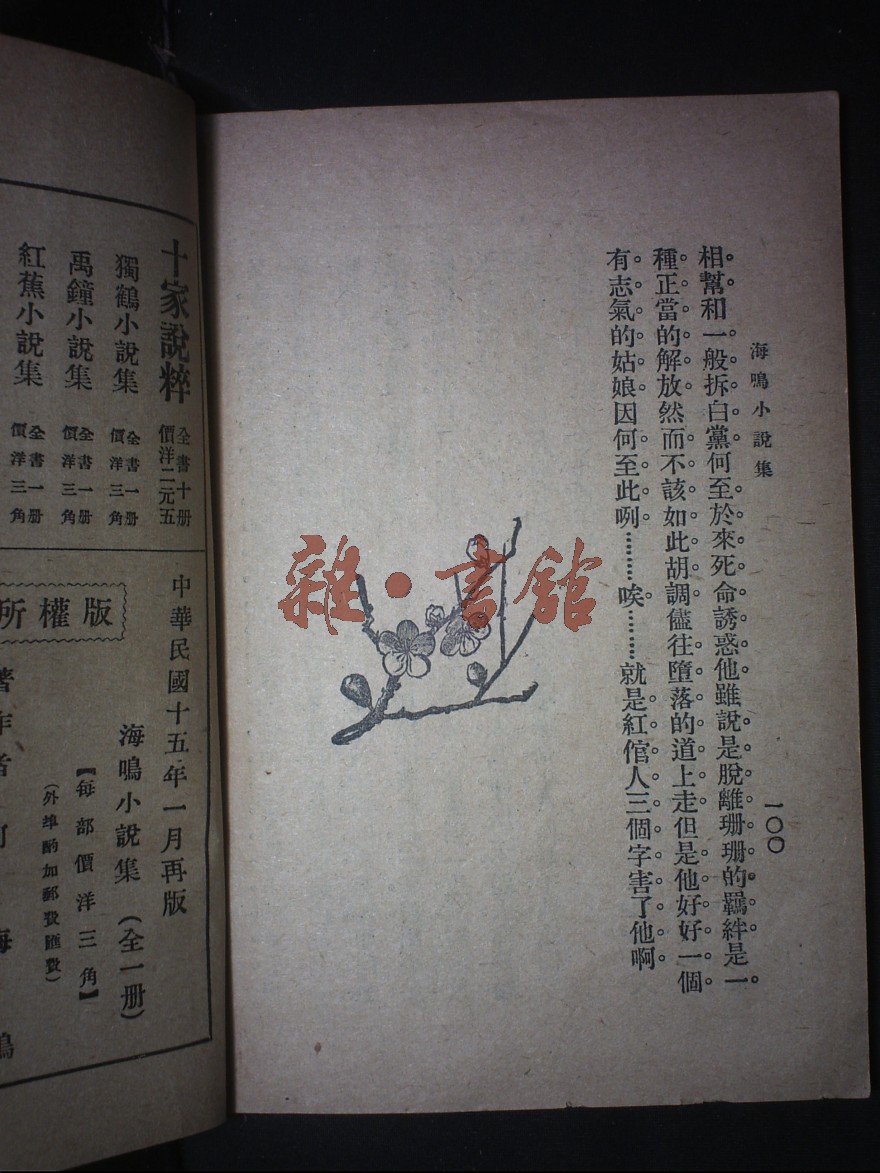 海鳴小說集
一〇〇
相幫和一般拆白黨何至於來死命誘惑他雖說是脫離珊珊的羈絆是一
種正當的解放然而不該如此胡調儘往墮落的道上走但是他好好一個
有志氣的姑娘因何至此咧………唉………就是紅倌人三個字害了他啊
雜·書館
十家說粹 全書十册 價洋二元五
獨鶴小說集 全書一册 價洋三角
禹鐘小說集 全書一册 價洋三角
紅蕉小說集 全書一册 價洋三角
中華民國十五年一月再版
海鳴小說集（全一册）
【每部價洋三角】
（外埠酌加郵費匯費）
版權所
著作者 海鳴